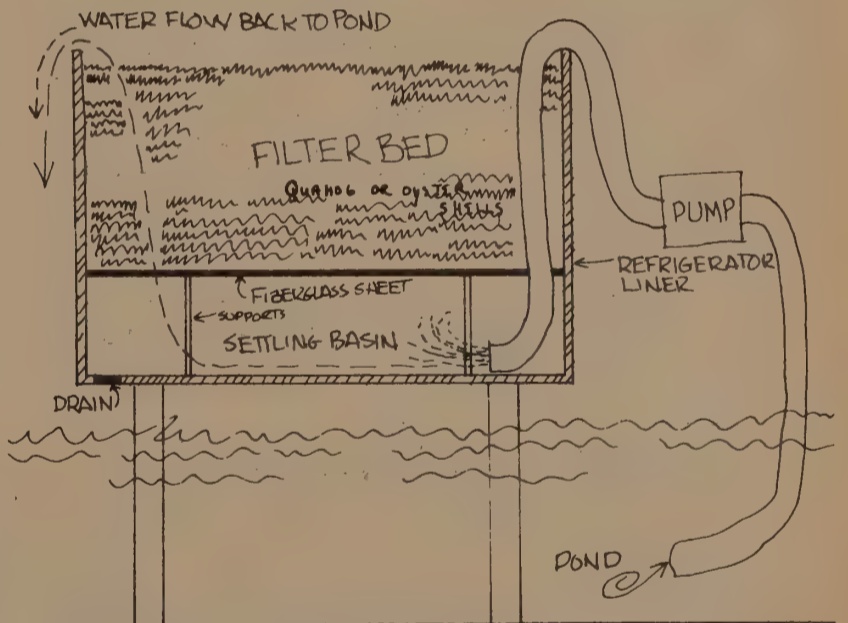 WATER FLOW BACK TO POND
FILTER BED
QUAHOG OR OYSTER
SHELLS
PUMP
REFRIGERATOR
LINER
FIBERGLASS SHEET
SUPPORTS
SETTLING BASIN
DRAIN
POND